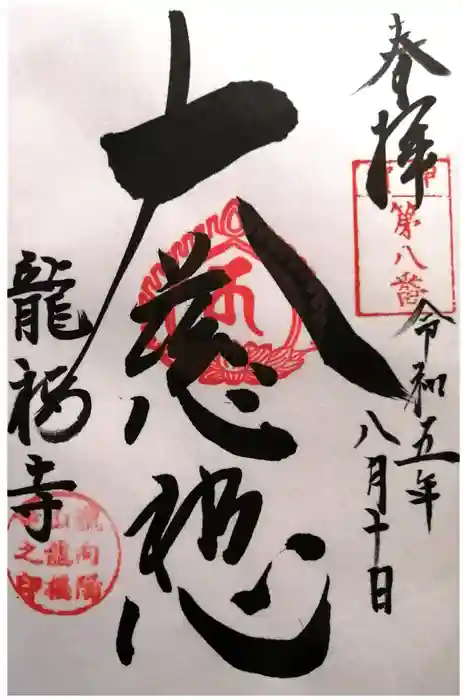 奉拝
第八番
令和五年
八月十日
大慈悲
龍福寺
山龍福
寺之印